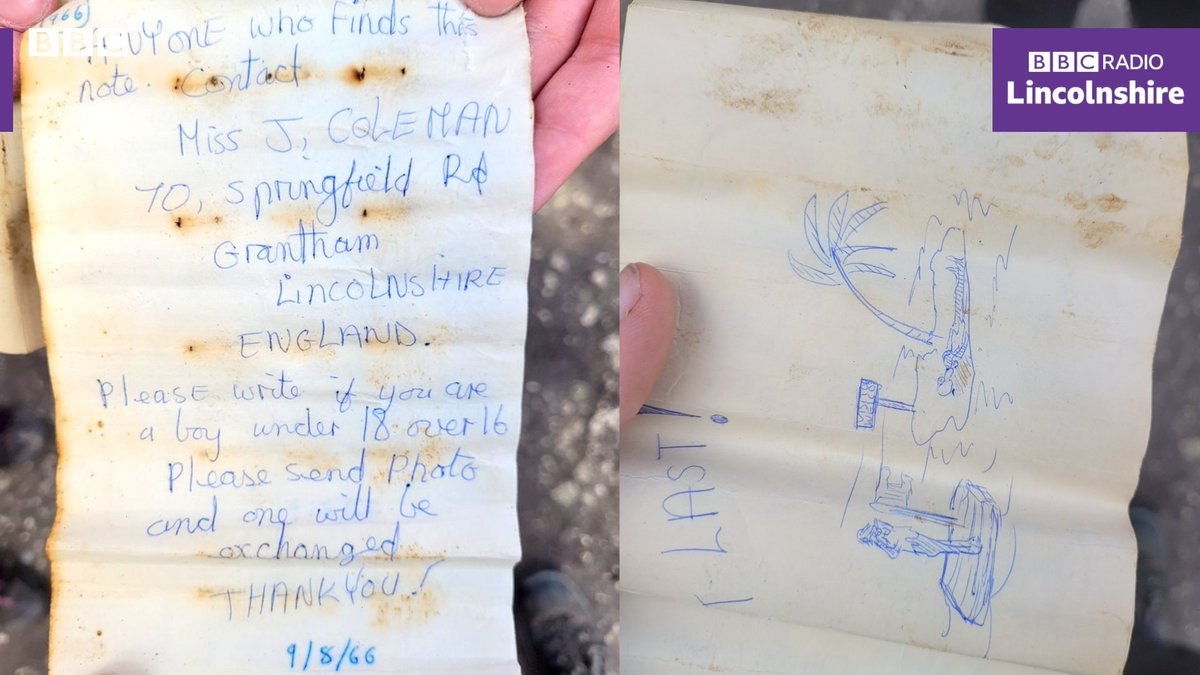 1966)
BBC
ANYONE who finds this
note. Contact
Miss J, COLEMAN
70, Springfield Rd
Grantham
LINCOLNSHIRE
ENGLAND.
Please write if you are
a boy under 18 over 16
Please send Photo
and one will be
exchanged
THANKYOU!
9/8/66
BBC RADIO
Lincolnshire
LAST!